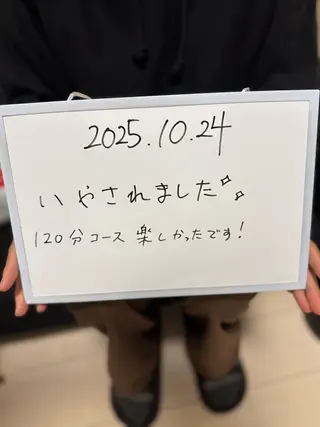 2025.10.24
いやされました✨
120分コース 楽しかったです!